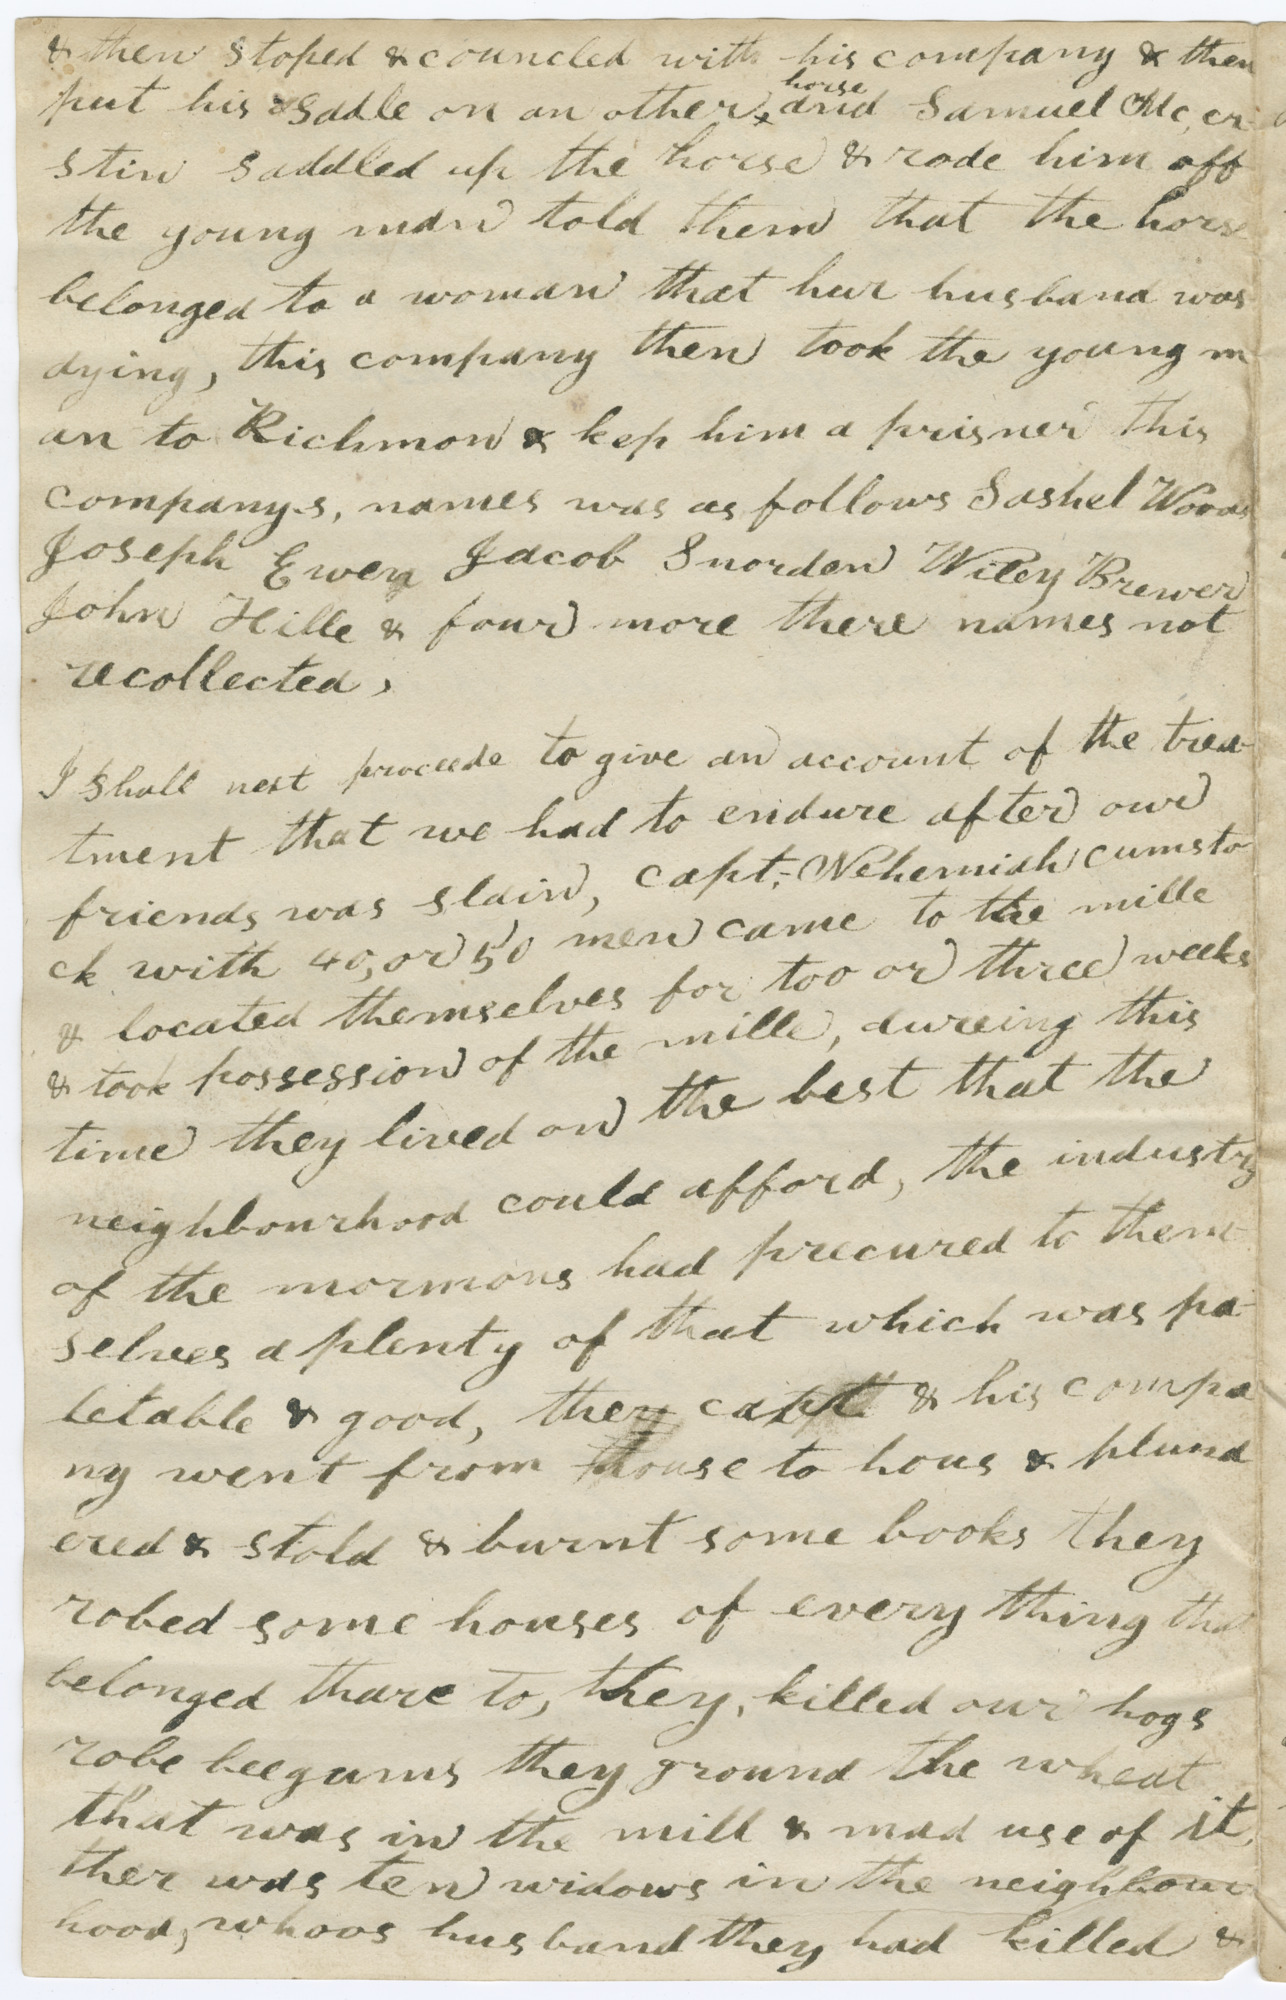 & then stoped & councled with his company & then
put his sadle on an other horse, and Samuel Mc, cri
stin saddled up the horse & rode him off
the young man told them that the horse
belonged to a woman that hur husband was
dying, this company then took the young m
an to Richmon & kep him a prisner this
companys, names was as follows Sashel Woods
Joseph Ewen Jacob Snorden Wiley Brewer
John Hille & four more there names not
recollected,
I shall next proceede to give an account of the trea
tment that we had to endure after our
friends was slain, capt,- Nehemiah cumsto
ck with 40, or 50 men came to the mille
& located themselves for too or three weeks
& took possession of the mille, dureing this
time they lived on the best that the
neighbourhood could afford, the industry
of the mormons had precured to them
selves a plenty of that which was pa
letable & good, ther capt & his compa
ny went from house to hous & plund
ered & stold & burnt some books they
robed some houses of every thing that
belonged thare to, they, killed our hogs
robe beegums they ground the wheat
that was in the mill & mad use of it,
ther was ten widows in the neighbour
hood, whoos husband they had killed &